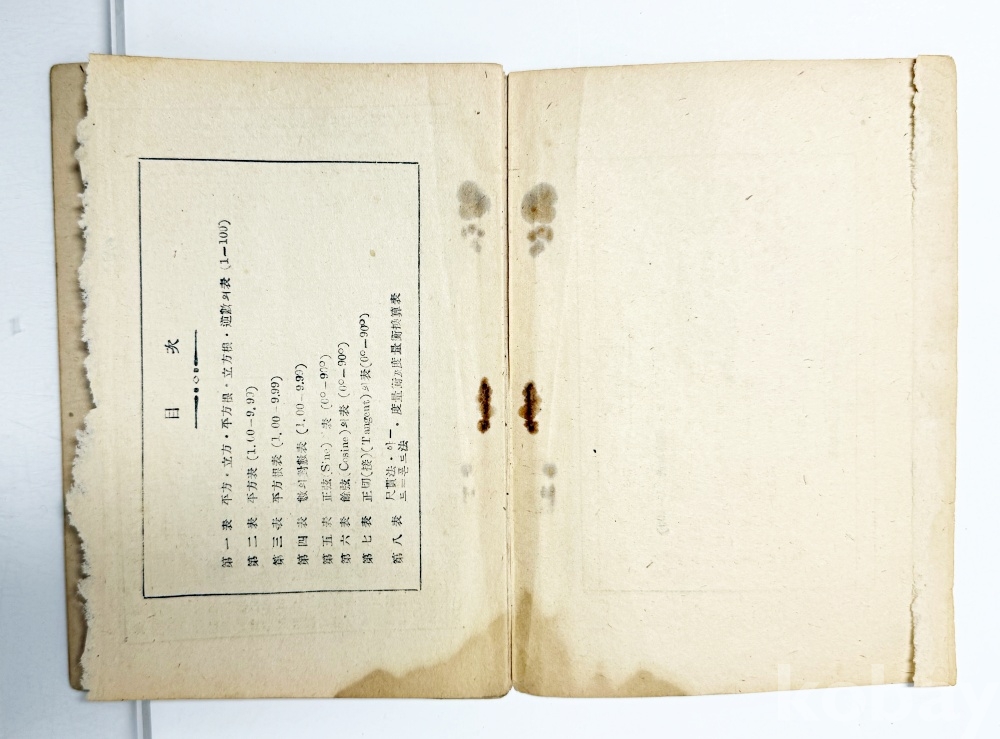 目次
第一表 平方・立方・平方根・立方根・逆數의表 (1—100)
第二表 平方表 (1.00-9.99)
第三表 平方根表 (1.00-9.99)
第四表 數의對數表 (1.00-9.99)
第五表 正弦(Sine) 表 (0°-90°)
第六表 餘弦(Cosine)의表 (0°-90°)
第七表 正切(接)(Tangent)의表(0°-90°)
第八表 尺貫法・야—드=폰드法・度量衡과度量衡換算表
kobay